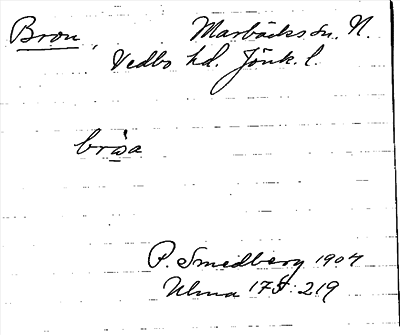 Bron, Marbäcks sn. N.
Vedbo hd. Jönk. l.
bråa
P. Smedberg 1904
Ulma 175:219